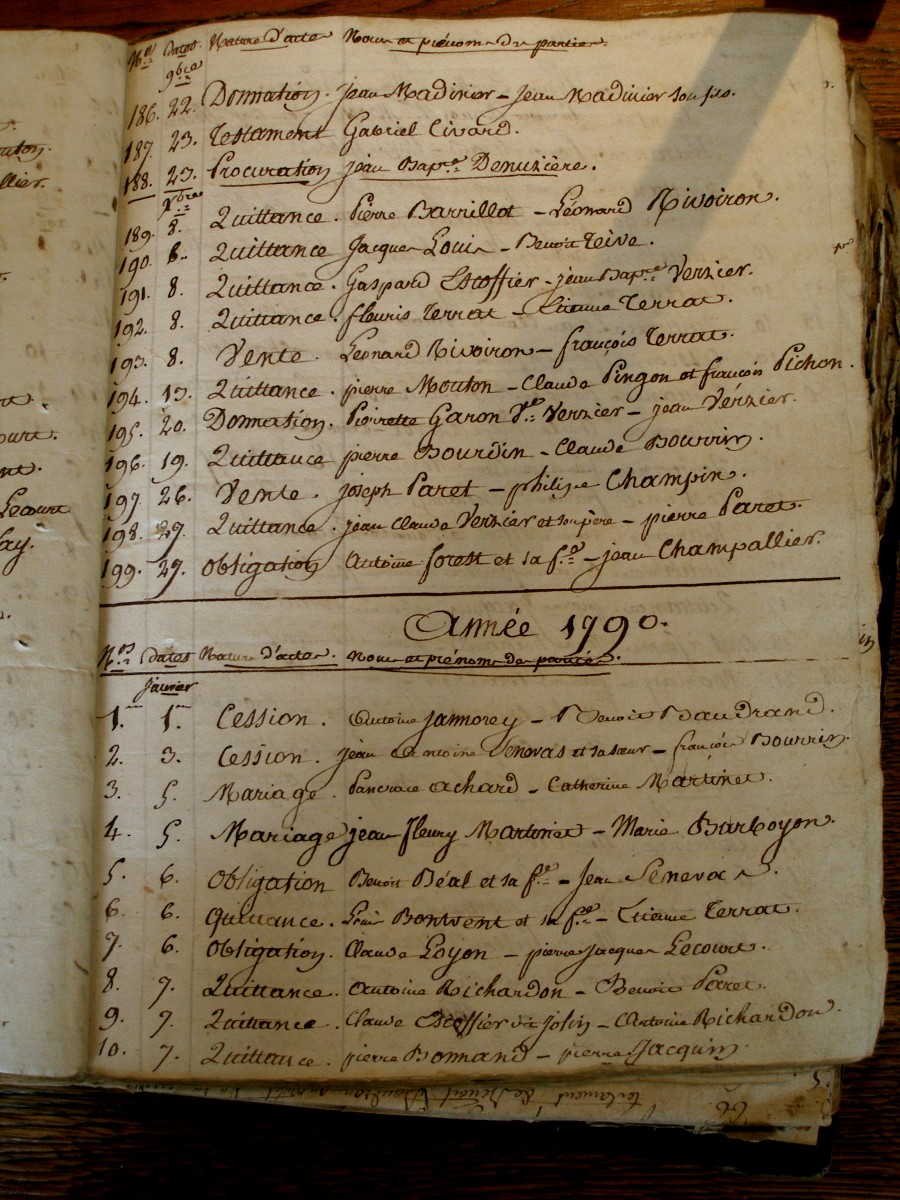 N.os Dates Nature d'actes Noms et prénoms des parties.
9bre
186. 22. Donnation. jean Madinier - jean Madinier son fils.
187. 23. Testament Gabriel Civard.
188. 23. Procuration jean Bap.te Denuzière.
Xbre
189. 8. Quittance. Pierre Barrillot - Léonard Rivoiron.
190. 8. Quittance Jacques Louis - Benoit Teive.
191. 8. Quittance. Gaspard Escoffier - jean Bap.te Verzier.
192. 8. Quittance. fleuris Terrat - Etienne Terrat.
193. 8. Vente. Léonard Rivoiron - françois Terrat.
194. 13. Quittance. pierre Mouton - Claude Pingon et françois Pichon.
195. 20. Donnation. Pierrette Garon V.ve Verzier - jean Vérzier.
196. 19. Quittance pierre Bourdin - Claude Bourrin.
197. 26. Vente. joseph Paret - philipe Champin.
198. 27. Quittance. jean Claude Verzier et son père - pierre Paret.
199. 29. Obligation Antoine forest et sa f.e - jean Champallier.
Année 1790.
N.os Dates Nature d'actes. Noms et prénoms des parties.
janvier
1. 1. Cession. Antoine Jamorey - Benoit Baudrand.
2. 3. Cession. jean Antoine Senevas et sa sœur - françois Bourrin.
3. 5. Mariage. Pancrace Achard - Catherine Martinet.
4. 5. Mariage jean fleury Martinet - Marie Barboyon.
5. 6. Obligation Benoit Béal et sa f.e - Jean Sénevas.
6. 6. Quittance. Bonvent et sa f.e - Etienne Terrat.
7. 6. Obligation. Claude Loyon - pierre Jacques Lecourt.
8. 7. Quittance. Antoine Richardon - Benoit Paret.
9. 7. Quittance. Claude Escoffier dit Jolin - Antoine Richardon.
10. 7. Quittance. pierre Bonnand - pierre Jacquin.